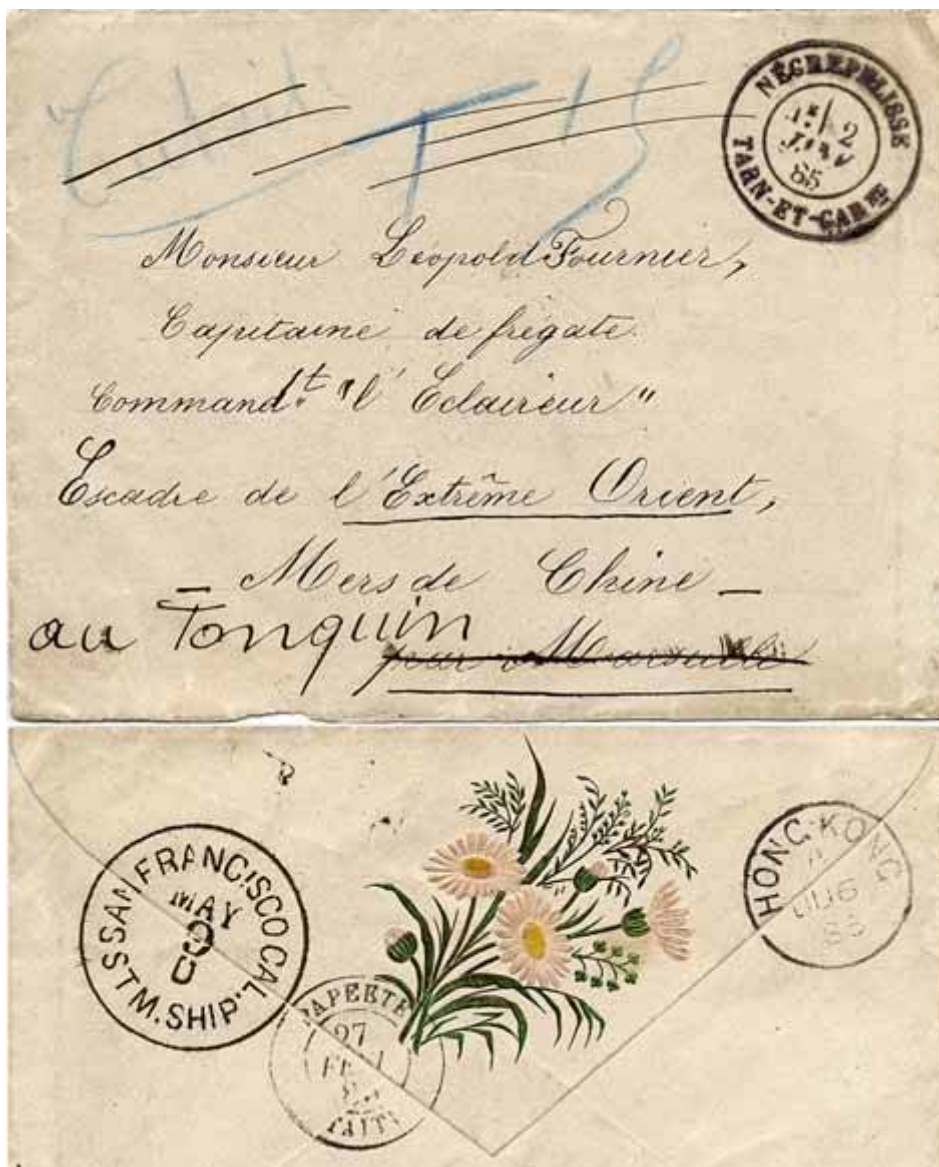 NÉGREPELISSE
2
JANV
85
TARN-ET-GAR NE
T 15
Monsieur Léopold Fournier,
Capitaine de frégate.
Command.t "l'Eclaireur"
Escadre de l'Extrême Orient,
— Mers de Chine —
au Tonquin
pour Marseille
SAN FRANCISCO CAL.
MAY
STM. SHIP.
PAPEETE
27
TAITI
HONG-KONG
A
JU 6
85